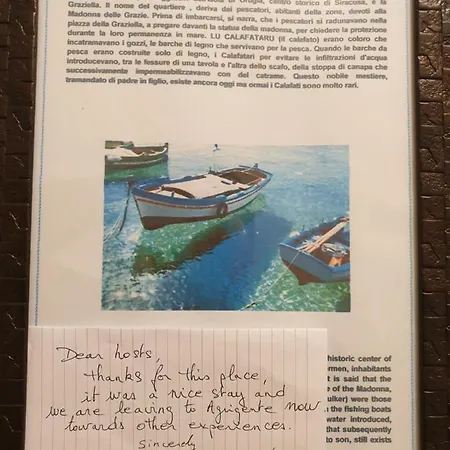 Graziella. Il nome del quartiere , deriva dai pescatori, abitanti della zona, devoti alla
Madonna delle Grazie. Prima di imbarcarsi, si narra, che i pescatori si radunavano nella
piazza della Graziella, a pregare davanti la statua della madonna, per chiedere la protezione
durante la loro permanenza in mare. LU CALAFATARU (il calefato) erano coloro che
incatramavano i gozzi, le barche di legno che servivano per la pesca. Quando le barche da
pesca erano costruite solo di legno, i Calafatari per evitare le infiltrazioni d'acqua
introducevano, tra le fessure di una tavola e l'altra dello scafo, della stoppa di canapa che
successivamente impermeabilizzavano con del catrame. Questo nobile mestiere,
tramandato di padre in figlio, esiste ancora oggi ma ormai i Calafati sono molto rari.
Dear hosts,
thanks for this place,
it was a nice stay and
we are leaving to Agrigente now
towards other experiences.
Sincerely
historic center of
rmen, inhabitants
t is said that the
e of the Madonna,
ulker) were those
the fishing boats
water introduced,
that subsequently
to son, still exists